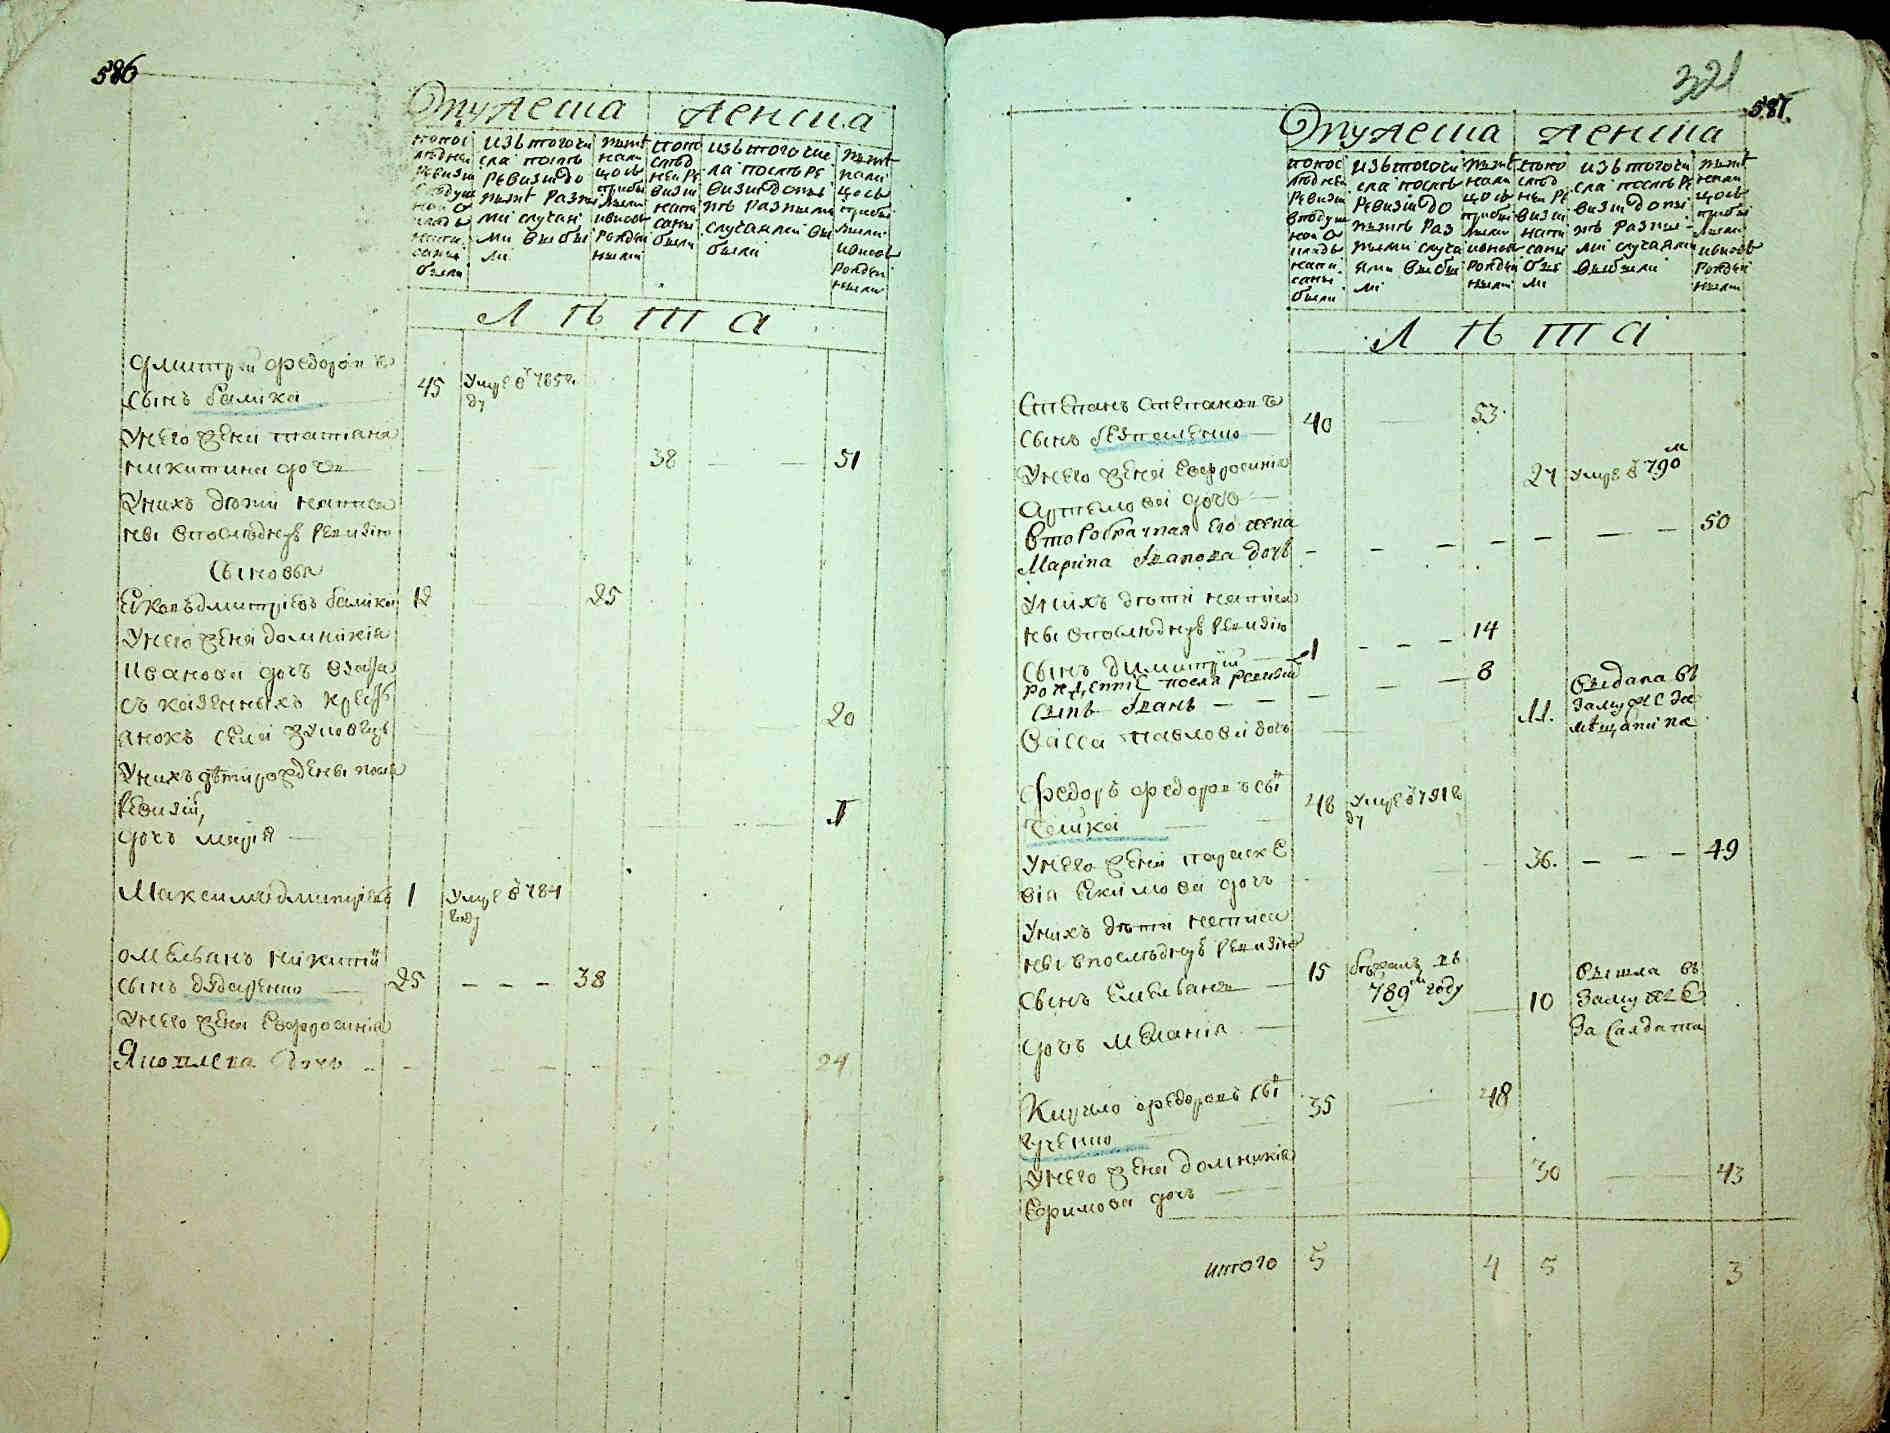 586
Мужеска Женска
по пос
ледней
ревизии
в подуш
ной о
кладъ
напи
саны
были
изъ того чи
сла после
ревизии до
ныне разны
ми случаи
ми выбы
ли
ныне
нали
цось
прибы
лыми
и вновь
рожден
ными
по по
след
ней ре
визии
напи
саны
были
изъ того чис
ла после ре
визии до ны
не разными
случаями вы
были
ныне
нали
цось
прибы
лыми
и вновь
рожден
ными
Л Ѣ Т А
Дмитрий Федоровъ
сынъ Галика 45 умре в 785 го
ду
У него жена Татиана
Никитина дочь — — 38 — — 51
У нихъ дети написа
ны в последнюю ревизию
Сыновья
Яковъ Дмитриевъ Галика 12 — 25
У него жена Домникия
Иванова дочь взята
съ казенныхъ крестъ
янокъ села 20
У нихъ дети рождены после
ревизии,
дочь Мария — 1
Максимъ Дмитриевъ 1 умре в 784
году
Омельянъ Никитин
сынъ Дударенко 25 — — — 38
У него жена Евфросиния
Яковлева дочь — — 24
321
587.
Мужеска Женска
по пос
ледней
ревизии
в подуш
ной о
кладъ
напи
саны
были
изъ того чи
сла после
ревизии до
ныне раз
ными случа
ями выбы
ли
ныне
нали
цось
прибы
лыми
и вновь
рожден
ными
по по
след
ней ре
визии
напи
саны
бы
ли
изъ того чи
сла после ре
визии до ны
не разны
ми случаями
выбыли
ныне
нали
цось
прибы
лыми
и вновь
рожден
ными
Л Ѣ Т А
Степанъ Степановъ
сынъ 40 — 53.
У него жена Евфросиния 27 умре в 790 м
Артемова дочь —
второбрачная его жена 50
Марина Иванова дочь — — — — — — —
У нихъ дети написа
ны в последнюю ревизию
Сынъ Димитрий — 1 — — — 14
рожденный после ревизии
Сынъ Иванъ — — — — — 8
Васса Павлова дочь — 11. выдана въ
замуже за
мещанина
Федоръ Федоровъ сын
Галика — 48 умре в 791 го
ду
У него жена Параске
вия Екимова дочь — 36. — — — 49
У нихъ дети написа
ны в последнюю ревизию
Сынъ Емельянъ — 15 бежалъ въ
789 м году
дочь Мелания — 10 вышла въ
замуже
за салдата
Кирило Федоровъ сын 35 — 48
У него жена Домникия
Ефимова дочь — 30 — 43
итого 5 4 5 3